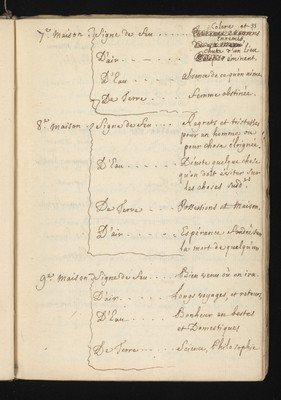 Colere et
7e Maison. Signe de feu
ennemis,
chute d'un lieu
D'air eminent.
D'Eau absence de ce qu'on aime.
De Terre. femme obstinée.
8e Maison Signe de feu Regrets et tristesses
pour un homme ou
pour chose eloignée.
D'Eau Denote quelque chose
qu'on doit eviter sur
les choses sudtes
De Terre Possessions et Maison.
D'air Esperance.
la mort de quelqu'un
9e Maison Signe de feu Bien venu où on ira.
D'air longs voyages, et retours.
D'Eau Bonheur en bestes
et Domestiques
De Terre Science, Philosophie